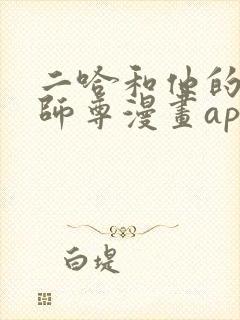 二哈和他的
師尊漫畫ap
白堤